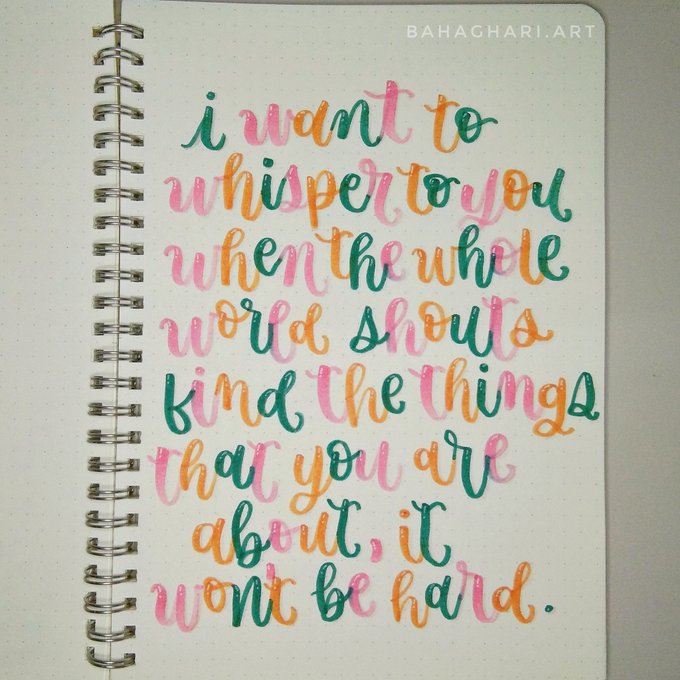 BAHAGHARI.ART
i want to
whisper to you
when the whole
world shouts
find the things
that you are
about, it
won't be hard.